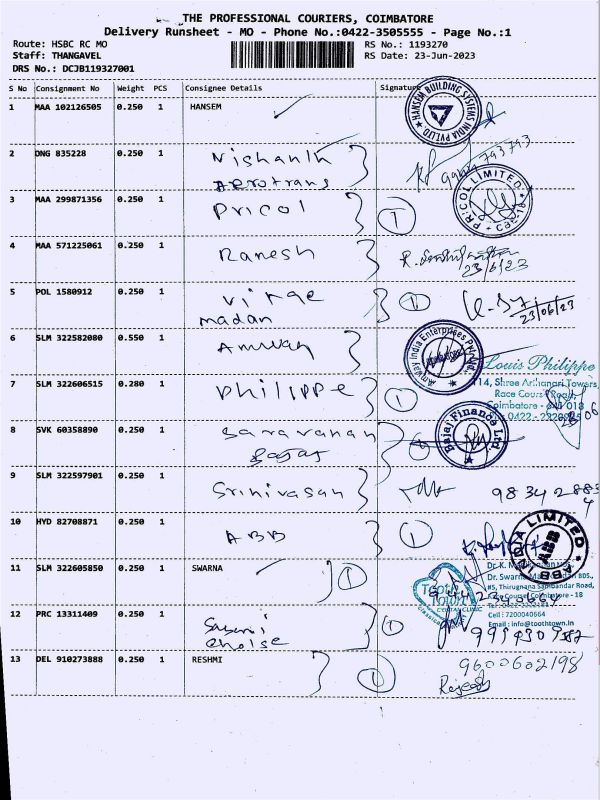 THE PROFESSIONAL COURIERS, COIMBATORE
Delivery Runsheet - MO - Phone No.:0422-3505555 - Page No.:1
Route: HSBC RC MO
RS No.: 1193270
Staff: THANGAVEL
RS Date: 23-Jun-2023
DRS No.: DCJB119327001
S No Consignment No Weight PCS Consignee Details Signature
1 MAA 102126505 0.250 1 HANSEM
HANSOM BUILDING SYSTEMS INDIA PVT LTD
2 DNG 835228 0.250 1 Nishanth
Aerotrans
3 MAA 299871356 0.250 1 Pricol 1
PRICOL LIMITED
CBE-18
4 MAA 571225061 0.250 1 Ramesh
23/6/23
5 POL 1580912 0.250 1 1
madan
23/06/23
6 SLM 322582080 0.550 1 Amway
Amway India Enterprises Pvt. Ltd.
7 SLM 322606515 0.280 1 Philippe 1
Louis Philippe
114, Shree Arthanari Towers,
Race Course Road,
Coimbatore - 641 018
8 SVK 60358890 0.250 1 Saravanan
Bajaj
Bajaj Finance Ltd
9 SLM 322597901 0.250 1 Srinivasan
98342883
4
10 HYD 82708871 0.250 1 ABB 1
ABB INDIA LIMITED
11 SLM 322605850 0.250 1 SWARNA 1
Tooth Town
Dr. Swarna
#5, Thirugnana Sambandar Road,
Race Course, Coimbatore - 18
Cell : 7200040664
Email : info@toothtown.in
12 PRC 13311409 0.250 1 1
Choise
13 DEL 910273888 0.250 1 RESHMI 1
9600602198